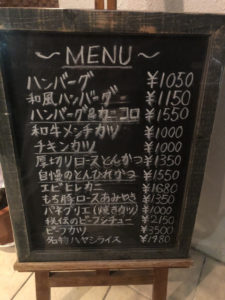 ～MENU～
ハンバーグ ¥1050
和風ハンバーグ ¥1150
ハンバーグ&カニコロ ¥1550
和牛メンチカツ ¥1000
チキンカツ ¥1000
厚切りロースとんかつ ¥1350
自慢のとんひれかつ ¥1550
エビヒレカニ ¥1680
もち豚ロースあみやき ¥1350
パネグリエ(焼きカツ) ¥1000
秘伝のビーフシチュー ¥2150
ビーフカツ ¥3500
名物ハヤシライス ¥1980